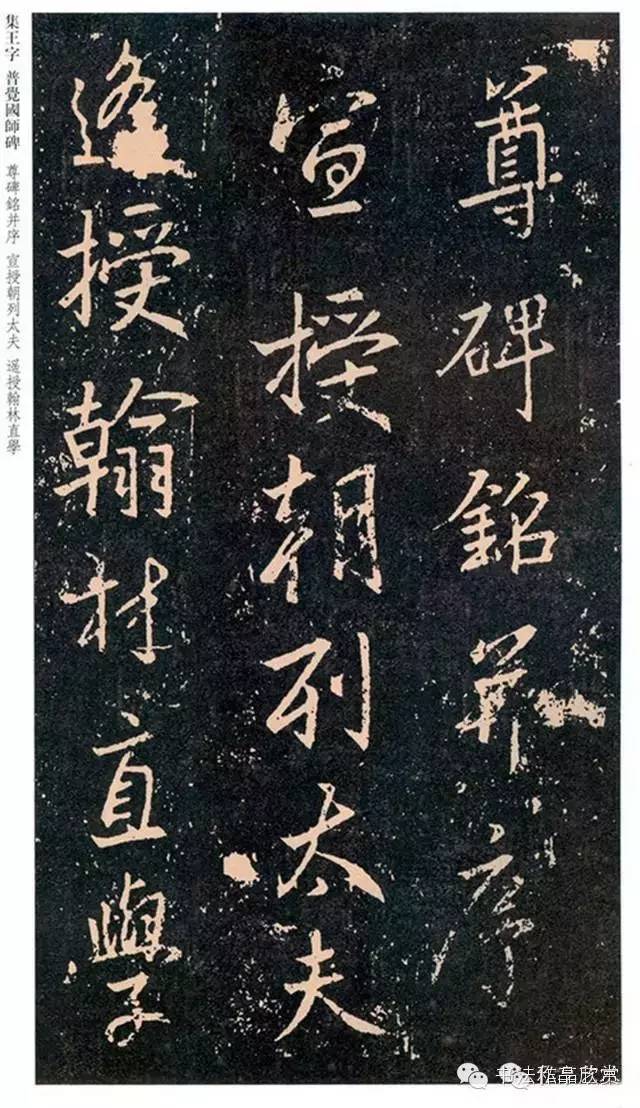 尊碑銘并序
宣授朝列太夫
遥授翰林直學
集王字 普覺國師碑 尊碑銘并序 宣授朝列太夫 遥授翰林直學
书法作品欣赏